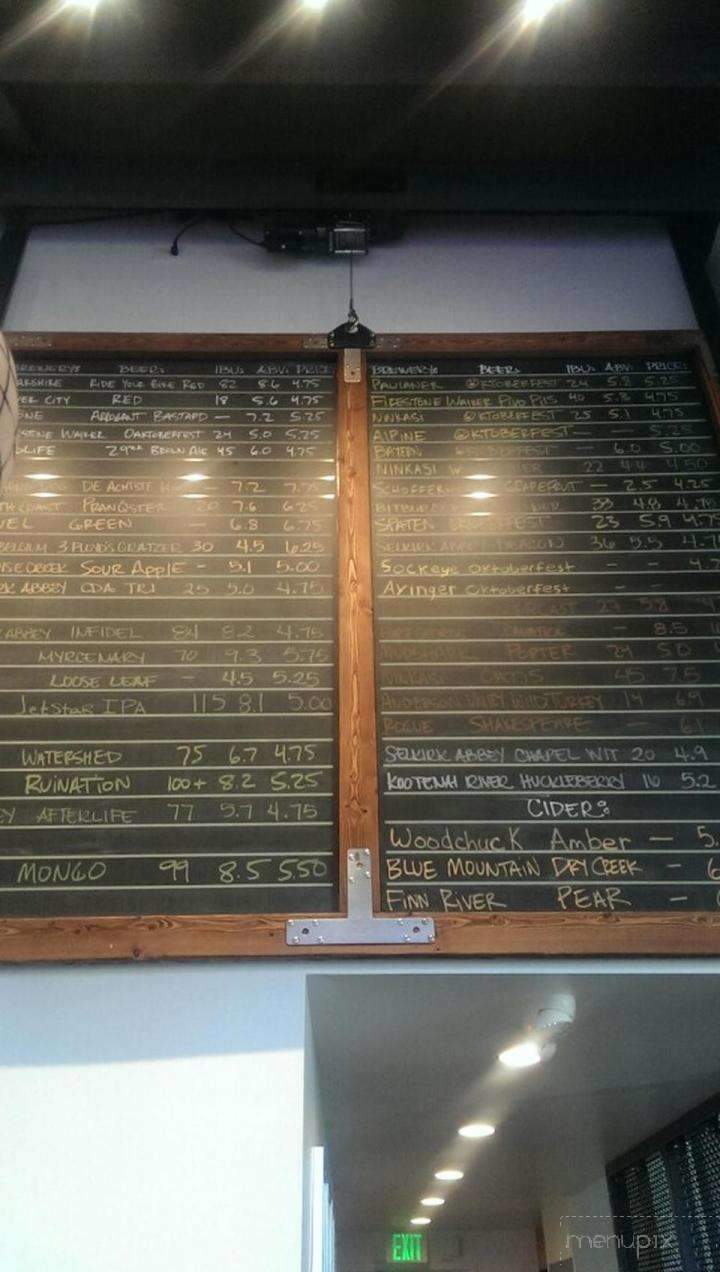 BREWERY: BEER: IBU: ABV: PRICE
RKSHIRE RIDE YOUR BIKE RED 82 8.6 4.75
ER CITY RED 18 5.6 4.75
NE ARROGANT BASTARD — 7.2 5.25
STONE WALKER OAKTOBERFEST 24 5.0 5.25
LIFE BROWN ALE 45 6.0 4.75
DE ACHSTE — 7.2
PRANQSTER 7.6 6.25
VEL GREEN — 6.8 6.75
BELGIUM 3 FLOYDS GRATZER 30 4.5 6.25
ISE CREEK SOUR APPLE — 5.1 5.00
RK ABBEY CDA TRI 25 5.0 4.75
ABBEY INFIDEL 84 8.2 4.75
MYRCENARY 70 9.3 5.75
LOOSE LEAF — 4.5 5.25
JetStar IPA 115 8.1 5.00
WATERSHED 75 6.7 4.75
RUINATION 100+ 8.2 5.25
EY AFTERLIFE 77 5.7 4.75
MONGO 99 8.5 5.50
BREWERY: BEER: IBU: ABV: PRICE:
PAULANER OKTOBERFEST 24 5.8 5.25
FIRESTONE WALKER PIVO PILS 40 5.3 4.75
NINKASI OKTOBERFEST 25 5.1 4.75
ALPINE OKTOBERFEST — — 5.25
— 6.0 5.00
NINKASI 22 4.4 4.50
SCHOFFER GRAPEFRUIT — 2.5 4.25
BITBURGER 38 4.8 4.75
SPATEN 23 5.9 4.7
SELKIRK ABBEY 36 5.5 4.7
Sockeye Oktoberfest — — 4.7
Ayinger Oktoberfest — —
27 5.8
— 8.5 10
MUDSHARK PORTER 24 5.0
NINKASI OATIS 45 7.5
ANDERSON VALLEY WILD TURKEY 14 6.9
ROGUE SHAKESPEARE — 6.1
SELKIRK ABBEY CHAPEL WIT 20 4.9
KOOTENAI RIVER HUCKLEBERRY 16 5.2
CIDER:
Woodchuck Amber — 5.
BLUE MOUNTAIN DRY CREEK — 6
FINN RIVER PEAR —
EXIT
menupix